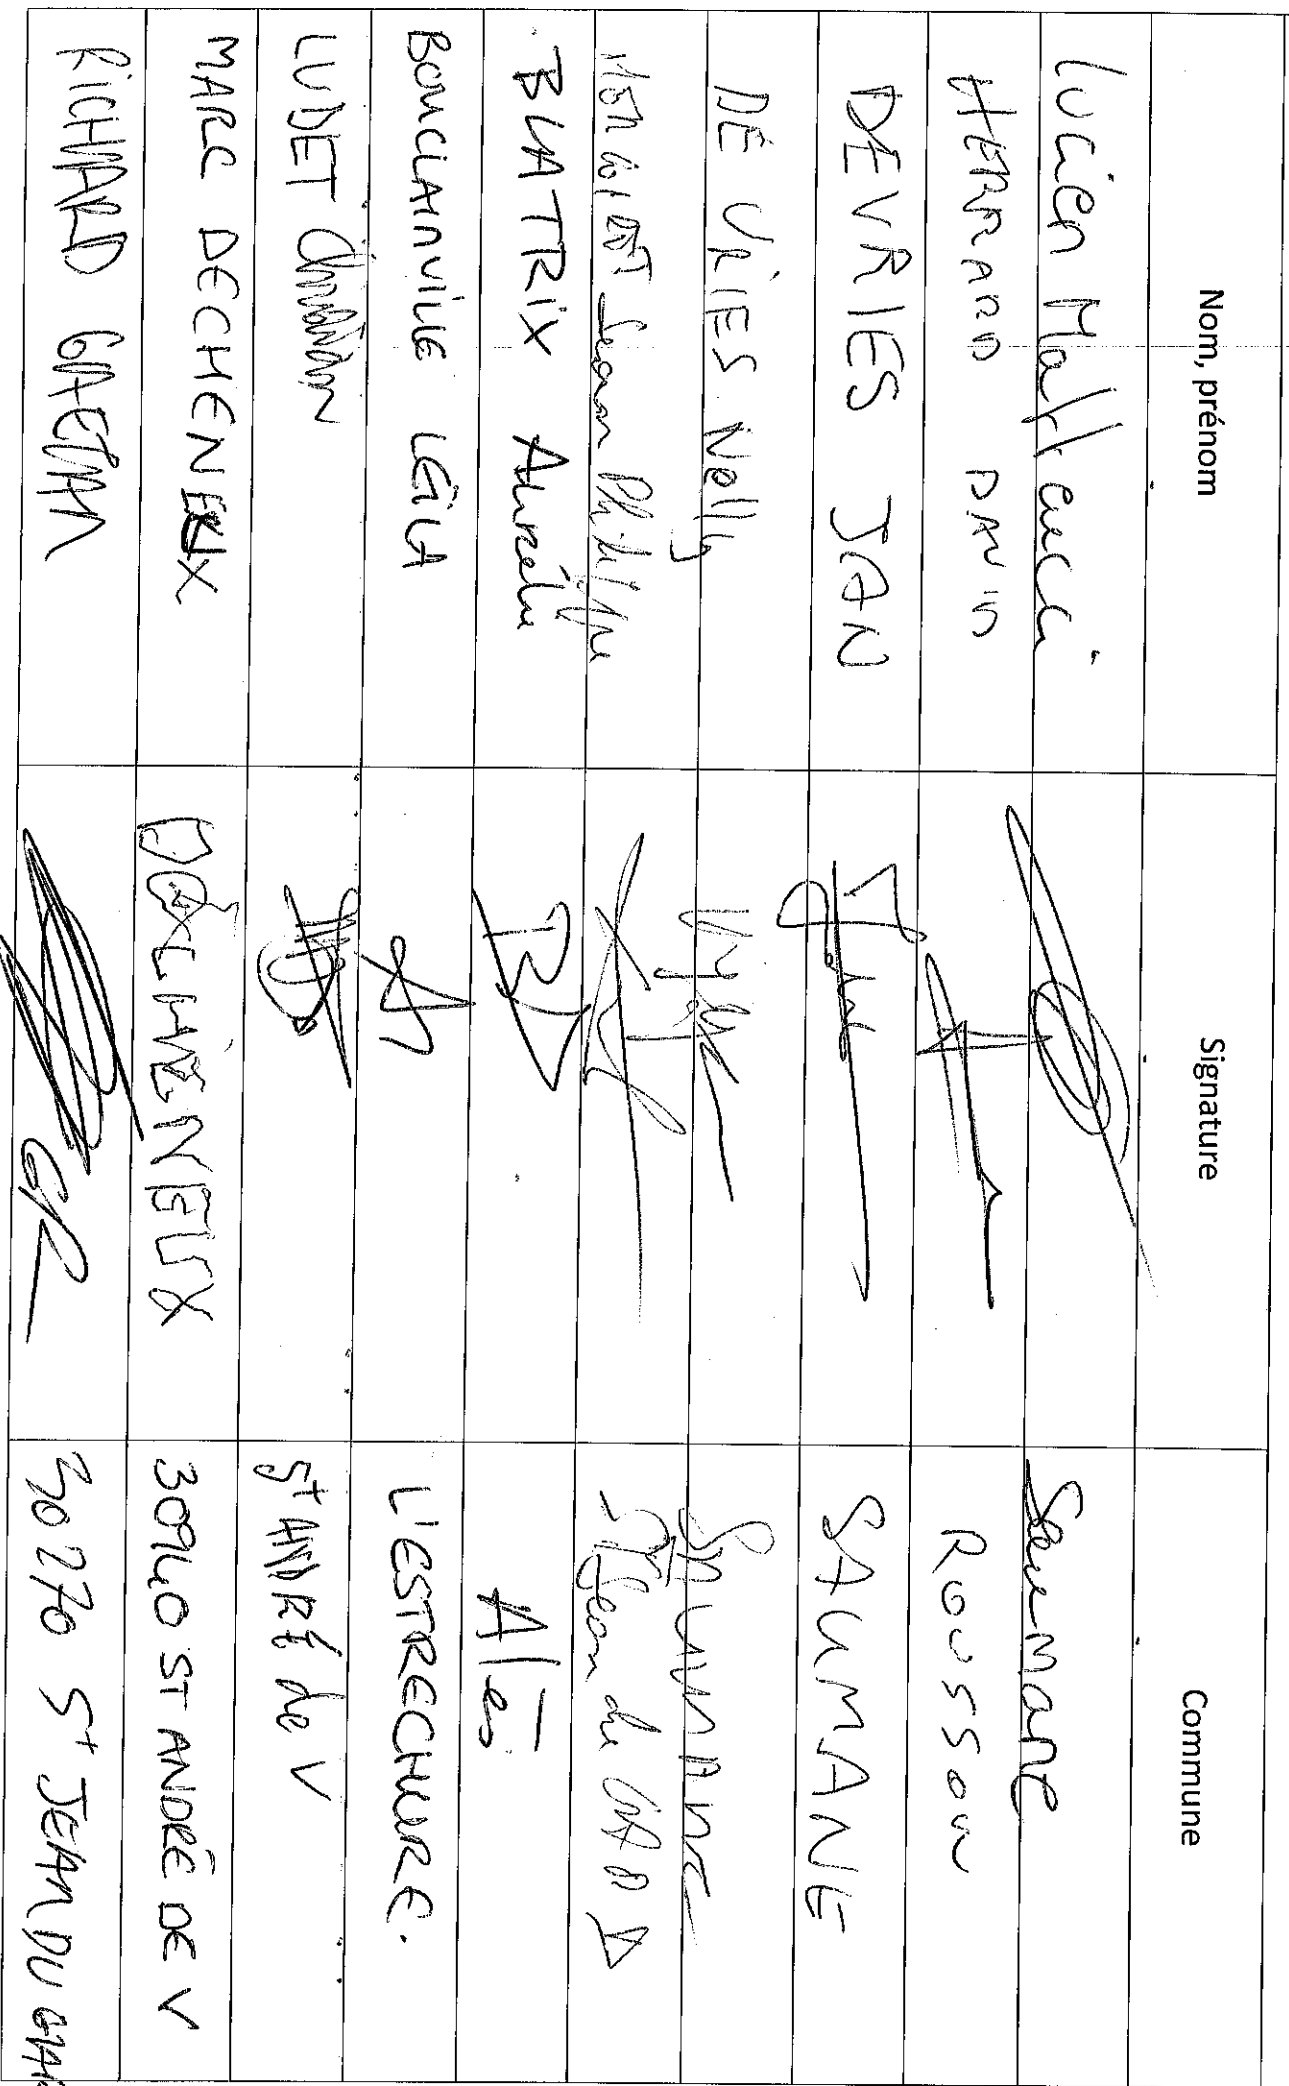 Nom, prénom Signature Commune
Lucien Matteucci Saumane
HERRARD DAVID ROUSSON
DEVRIES JAN SAUMANE
DE VRIES Nelly SAUMANE
Jean Philippe St Jean du GARD
BLATRIX Aurélie Alès
BOUCLAINVILLE LEÏLA L'ESTRECHURE.
LUDET St ANDRÉ de V
MARC DECHENEUX DECHENEUX 30940 ST ANDRÉ DE V
RICHARD GAETAN GR 30270 St JEAN DU GAR